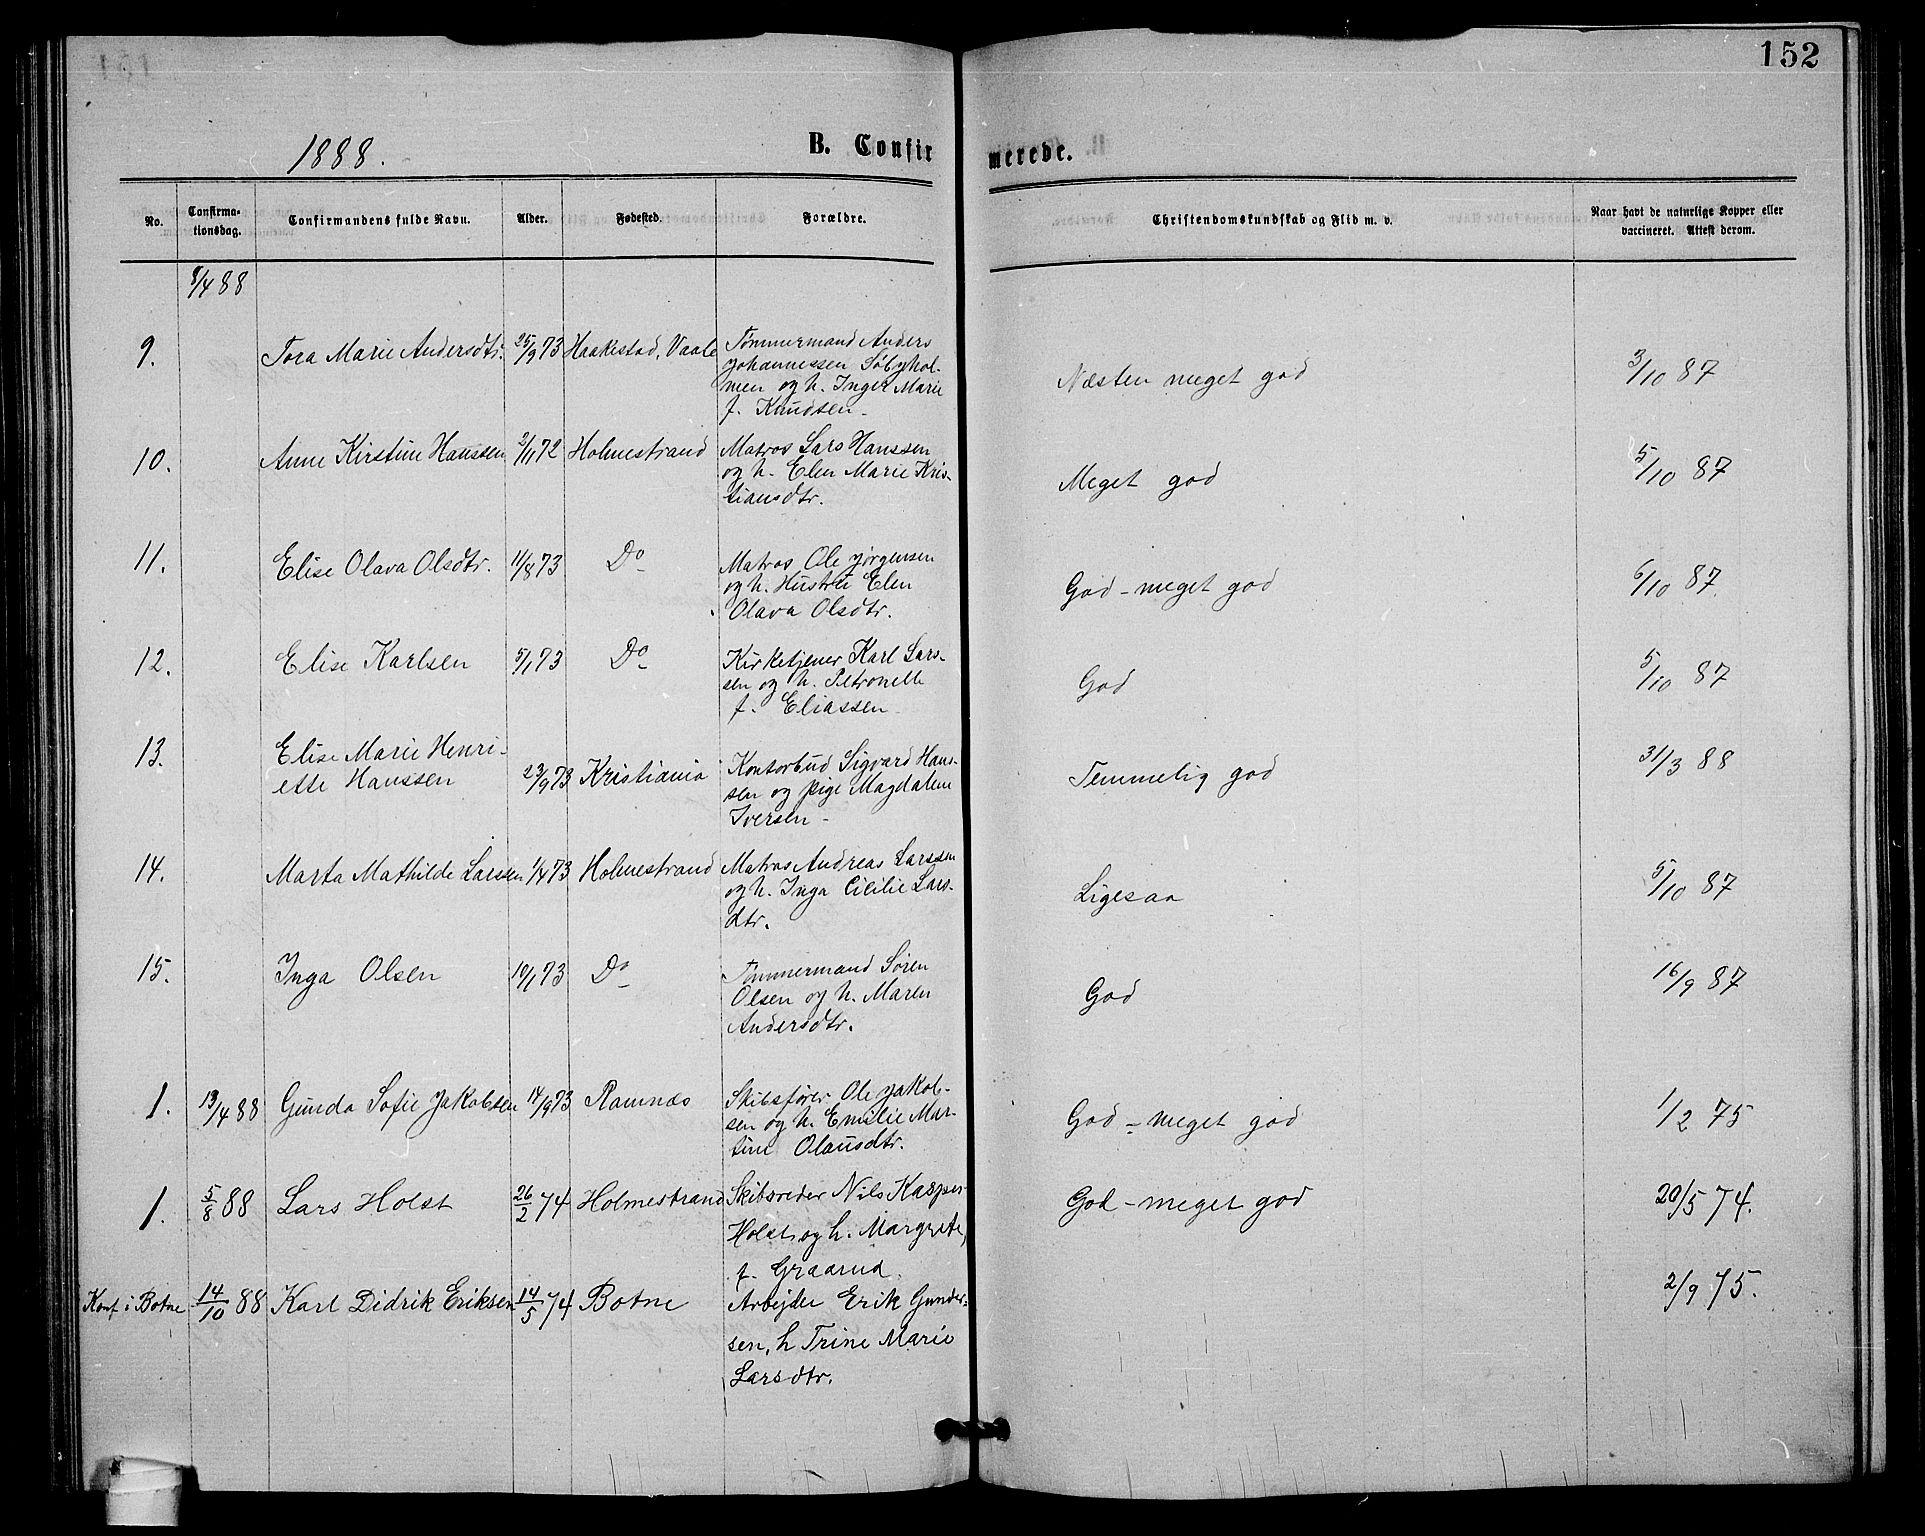 152
1888.
B. Confirmerede.
No.
Confirma-
tionsdag.
Confirmandens fulde Navn.
Alder.
Fødested.
Forældre.
Christendomskundskab og Flid m. v.
Naar havt de naturlige Kopper eller
vaccineret. Attest derom.
8/4 88
9. Tora Marie Andersdtr. 25/9 73 Haakestad, Vaale Tømmermand Anders
Johannessen Söbyhol-
men og h. Inger Marie
f. Knudsen. Næsten meget god 3/10 87
10. Anne Kirstine Hanssen 2/11 72 Holmestrand Matros Lars Hanssen
og h. Elen Marie Kris-
tiansdtr. Meget god 5/10 87
11. Elise Olava Olsdtr. 11/8 73 Do Matros Ole Jørgensen
og h. Hustru Elen
Olava Olsdtr. God - meget god 6/10 87
12. Elise Karlsen 5/1 73 Do Kirketjener Karl Lars-
sen og h. Petronelle
f. Eliassen God 5/10 87
13. Elise Marie Henri-
ette Hanssen 23/9 73 Kristiania Kontorbud Sigvard Hans-
sen og pige Magdalene
Iversen - Temmelig god 31/3 88
14. Marta Mathilde Larssen 1/4 73 Holmestrand Matros Andreas Larssen
og h. Inga Cicilie Lars-
dtr. Ligesaa 5/10 87
15. Inga Olsen 10/1 73 Do Tømmermand Sören
Olsen og h. Maren
Andersdtr. God 16/9 87
1. 13/4 88 Gunda Sofie Jakobsen 14/9 73 Ramnæs Skibsfører Ole Jakob-
sen og h. Emilie Mar-
tine Olausdtr. God - meget god 1/2 75
1. 5/8 88 Lars Holst 26/2 74 Holmestrand Skibsreder Nils Kasper
Holst og h. Margrete,
f. Graarud. God - meget god 20/5 74.
Konf. i Botne 14/10 88 Karl Didrik Eriksen 14/5 74 Botne Arbejder Erik Gunder-
sen, h Trine Marie
Larsdtr. 2/9 75.